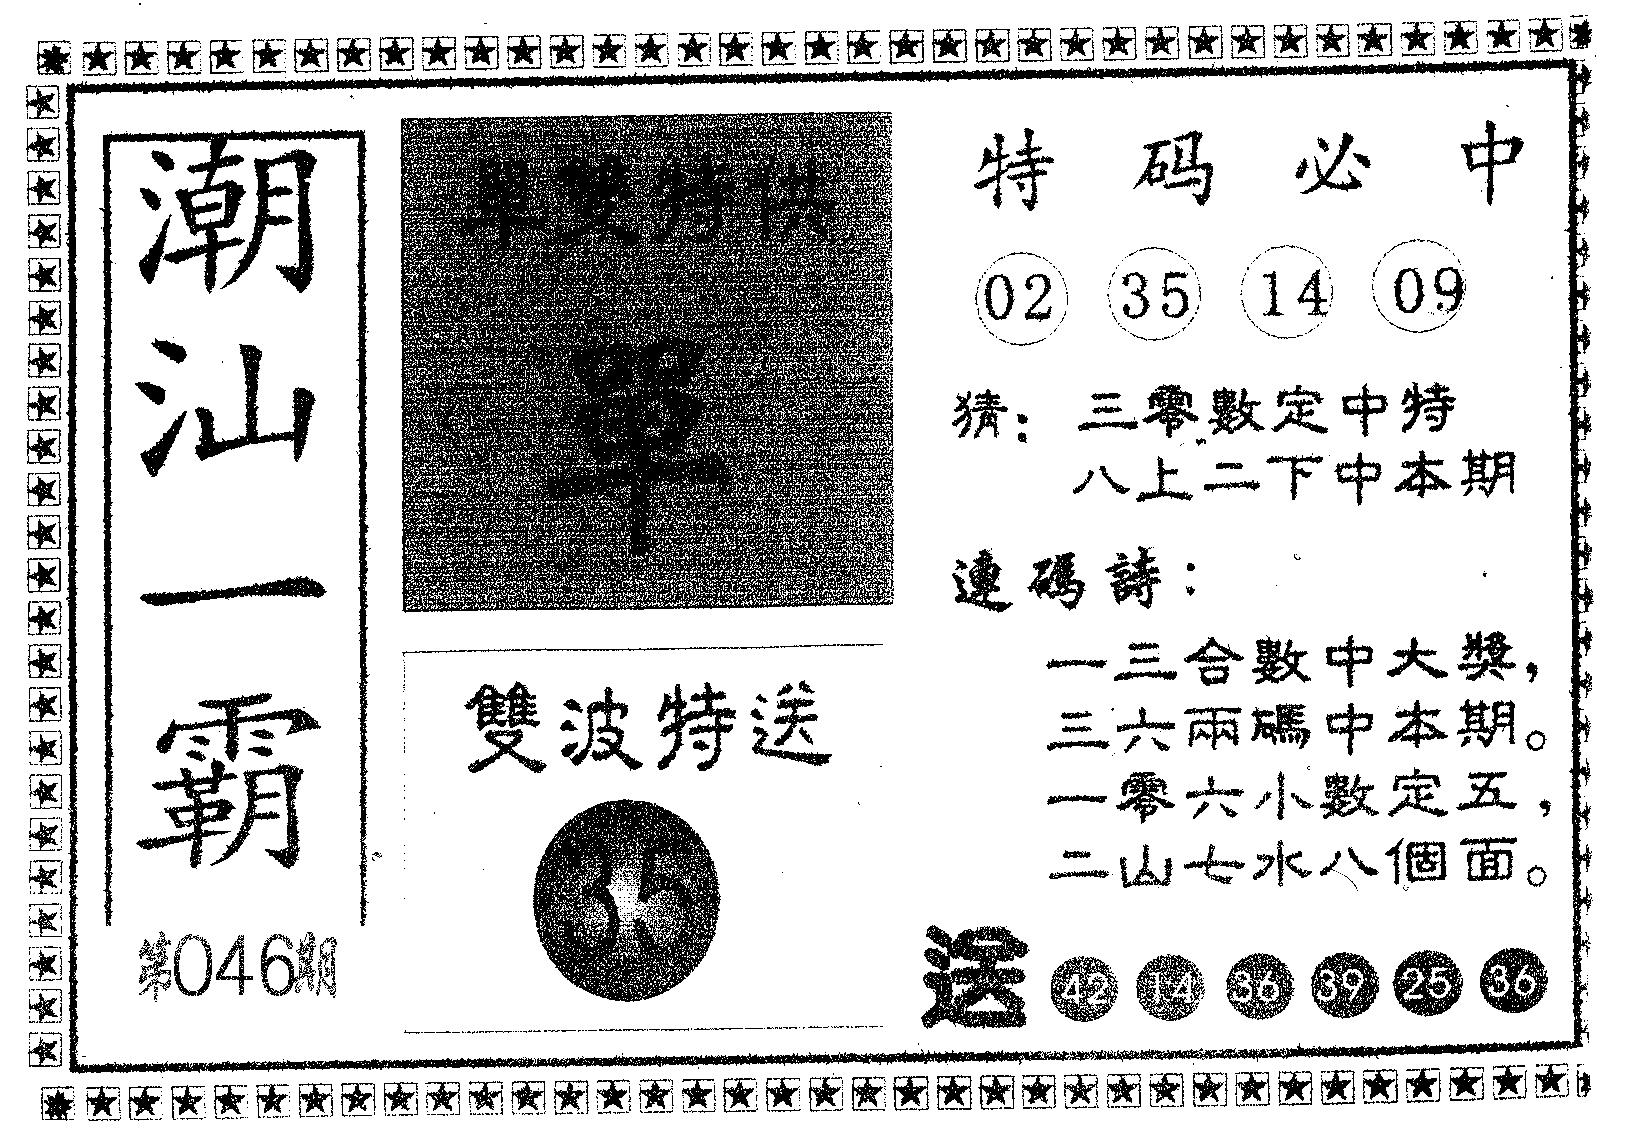 潮汕一霸
第046期
單雙特供
單
雙波特送
35
特码必中
02 35 14 09
猜：三零數定中特
八上二下中本期
連碼詩：
一三合數中大獎，
三六兩碼中本期。
一零六小數定五，
二山七水八個面。
送 42 14 36 39 25 36